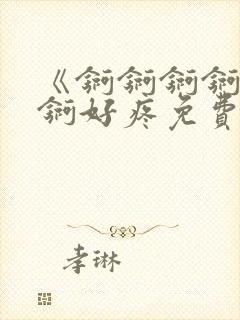 《锕锕锕锕
锕好疼免費
李琳